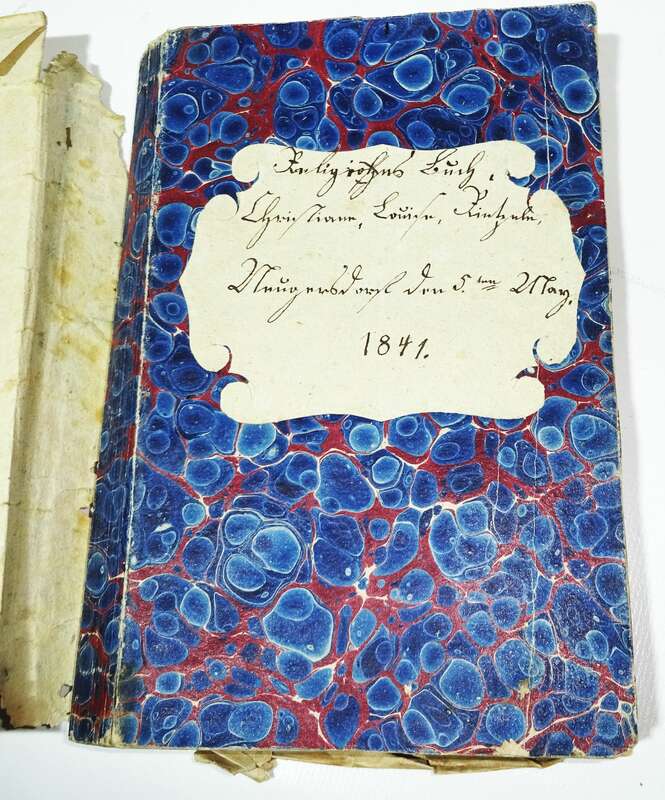 Religions Buch.
Christiane, Louise,
Neugersdorf den 5.ten May.
1841.